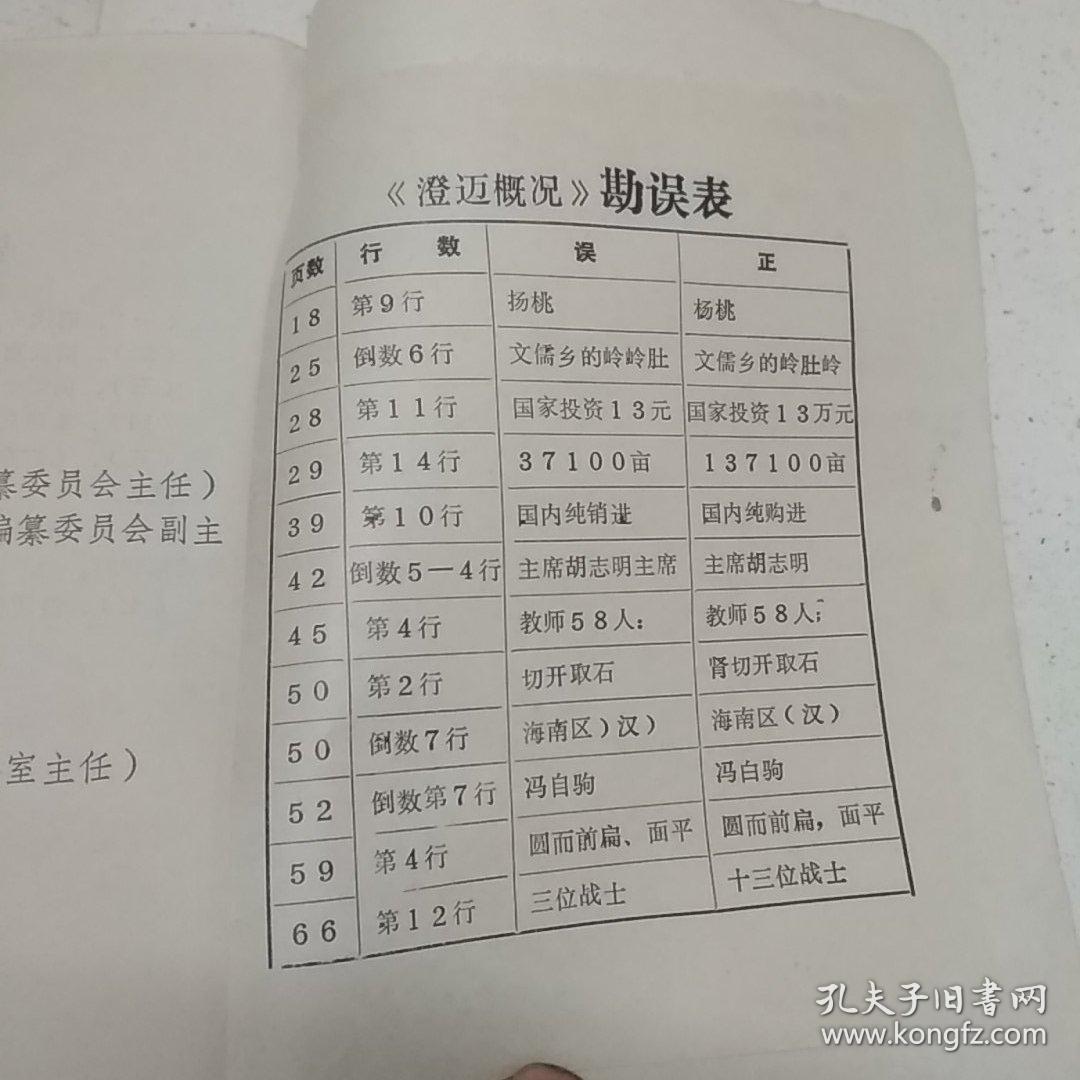 《澄迈概况》勘误表
页数 行数 误 正
18 第9行 扬桃 杨桃
25 倒数6行 文儒乡的岭岭肚 文儒乡的岭肚岭
28 第11行 国家投资13元 国家投资13万元
29 第14行 37100亩 137100亩
39 第10行 国内纯销进 国内纯购进
42 倒数5—4行 主席胡志明主席 主席胡志明
45 第4行 教师58人： 教师58人；
50 第2行 切开取石 肾切开取石
50 倒数7行 海南区）汉） 海南区（汉）
52 倒数第7行 冯自驹 冯白驹
59 第4行 圆而前扁、面平 圆而前扁，面平
66 第12行 三位战士 十三位战士
纂委员会主任）
编纂委员会副主
室主任）
孔夫子旧書网
www.kongfz.com